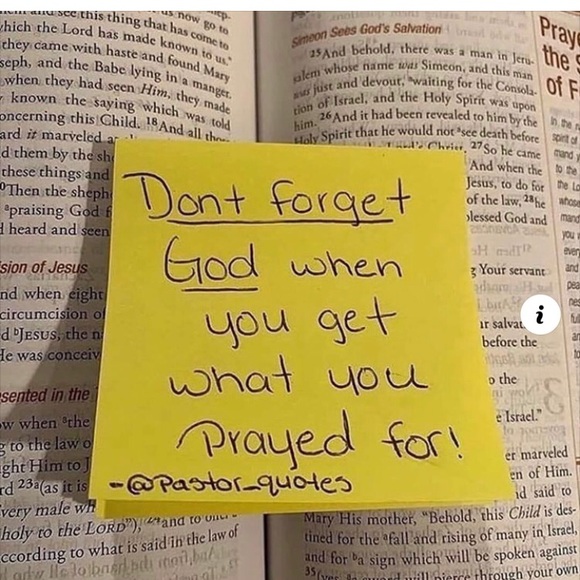 see this thing that has come to
now go to
which the Lord has made known to us."
they came with haste and found Mary
seph, and the Babe lying in a manger.
when they had seen Him, they made
known the saying which was told
oncerning this Child. 18And all
ard it marveled
d them by the sh
these things and
Then the sheph
praising God f
d heard and seen
sion of Jesus
nd when eight
circumcision o
d JESUS, the n
He was conceiv
sented in the
w when the
g to the law o
ght Him to J
rd 23 (as it is
very male wh
holy to the LORD"), 24 and to
ccording to what is said in the law of
Dont forget
God when
you get
what you
Prayed for!
-@Pastor_quotes
Simeon Sees God's Salvation
25And behold, there was a man in Jeru-
salem whose name was Simeon, and this man
was just and devout, waiting for the Consola-
tion of Israel, and the Holy Spirit was upon
him. 26And it had been revealed to him by the
Holy Spirit that he would not see death before
27So he came
And when the
Jesus, to do for
of the law, 28he
blessed God and
Your servant
r salvat
before the
o the
e Israel."
er marveled
en of Him.
d said to
Mary His mother, "Behold, this Child is des-
tined for the fall and rising of many in Israel,
and for a sign which will be spoken against
35
through your own
Praye
the S
of F
i